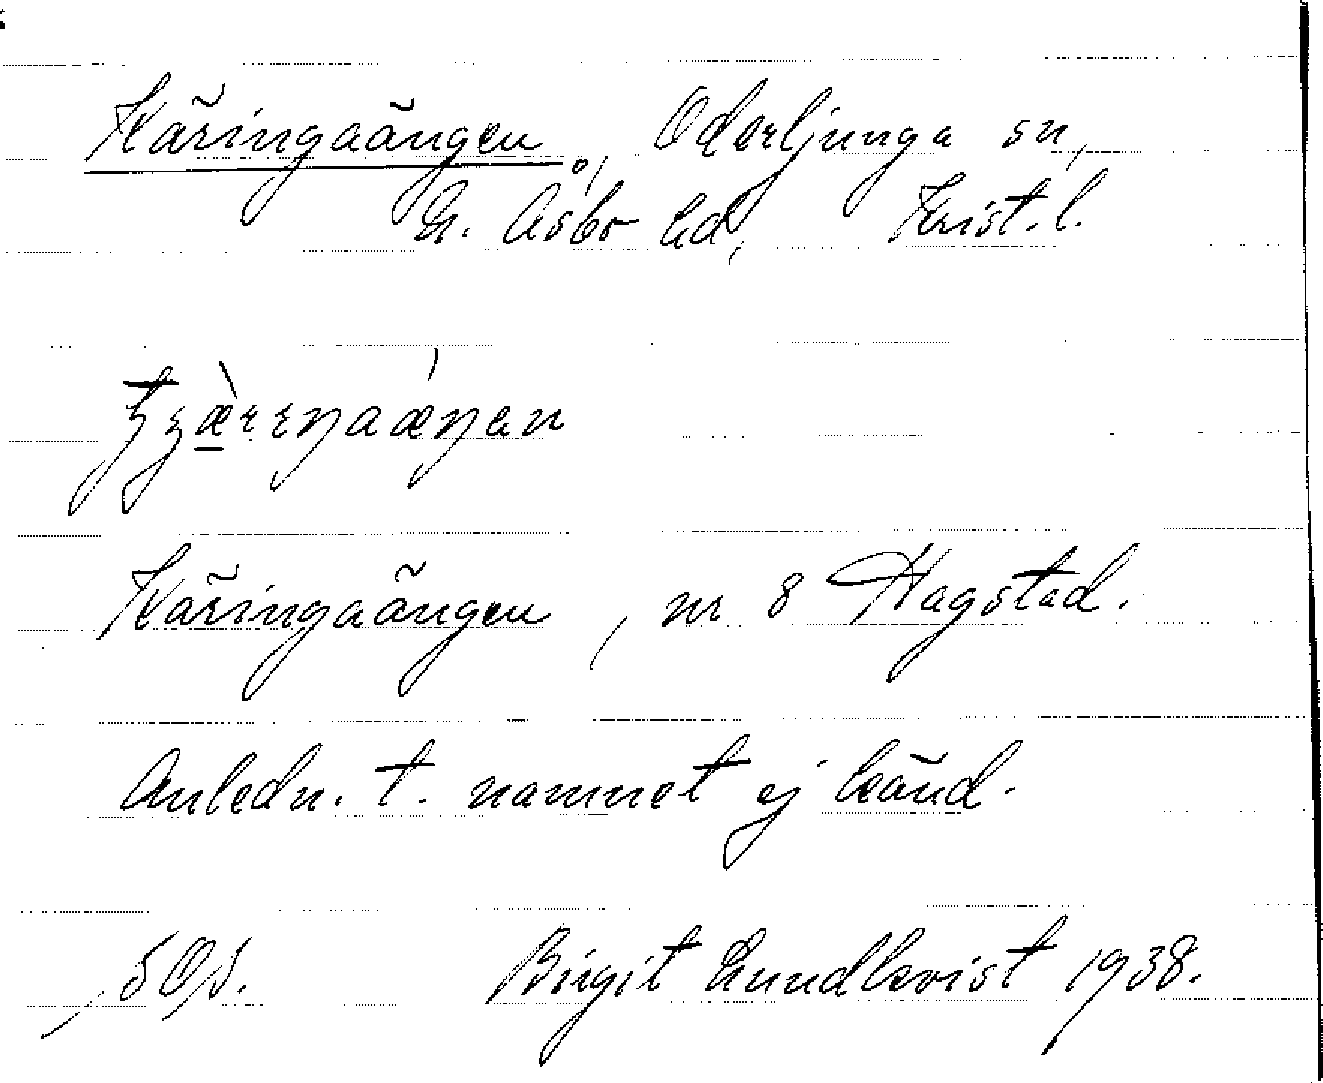 Käringaängen, Oderljunga sn,
N. Åsbo hd, Krist. l.
Käringaängen, nr 8 Hagstad.
Anledn. t. namnet ej känd.
Birgit Lundkvist 1938.